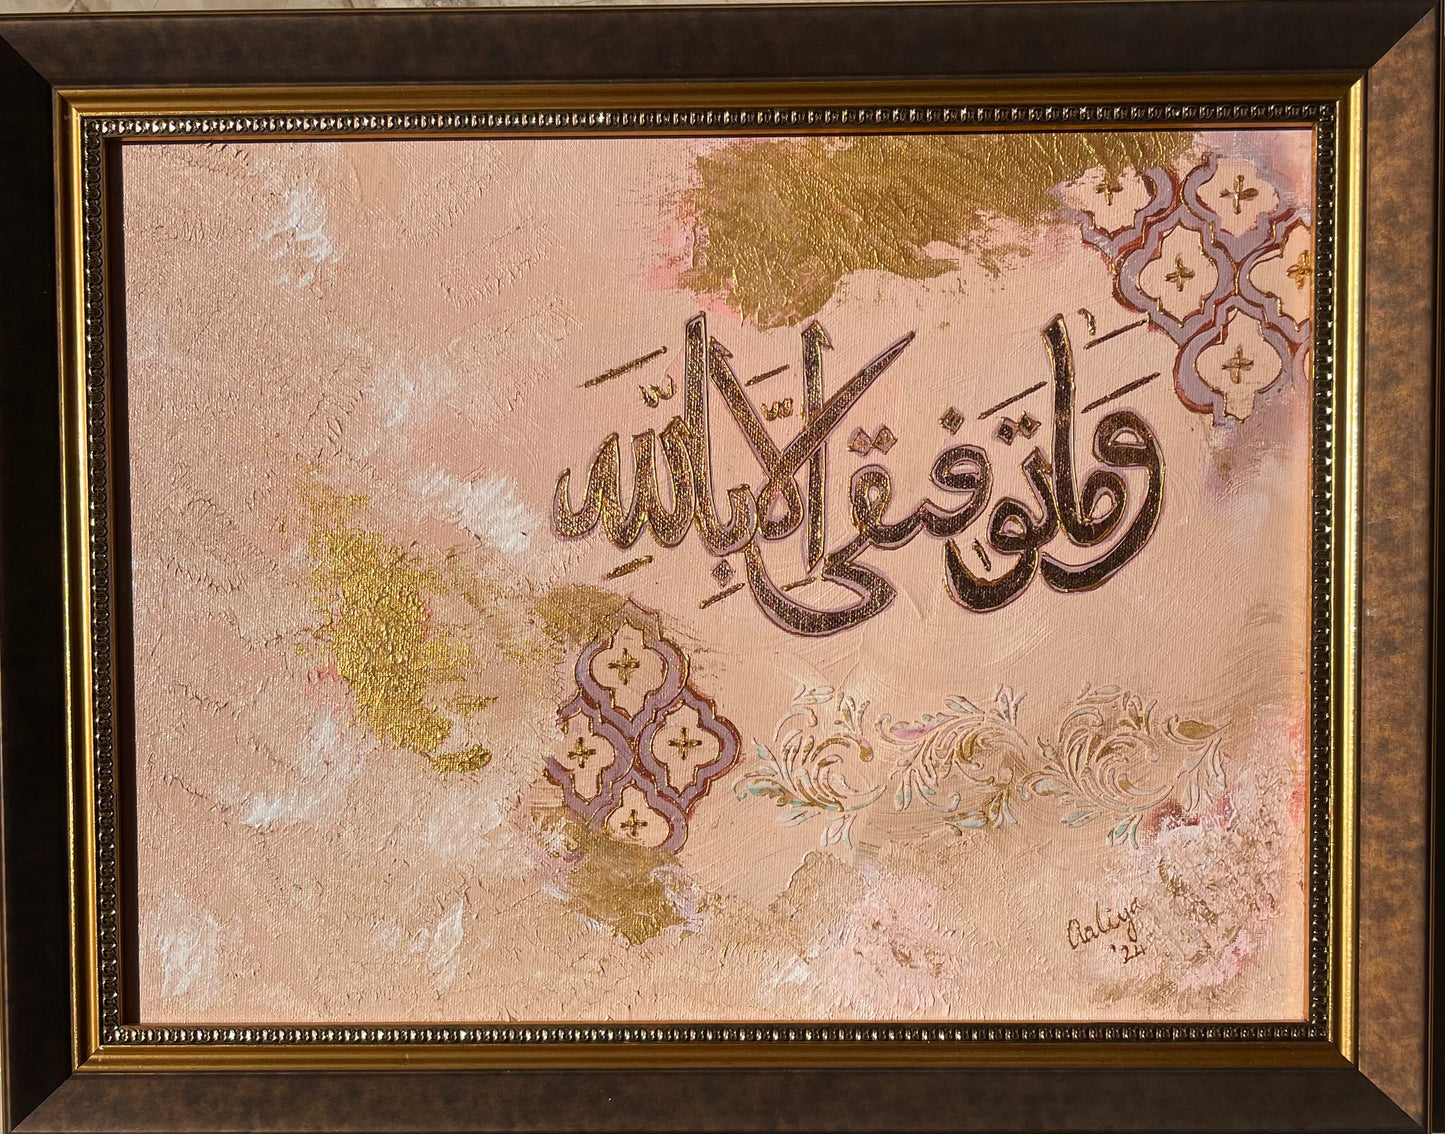 وَمَا تَوْفِيقِى إِلَّا بِاللَّهِ
Aaliya
'24